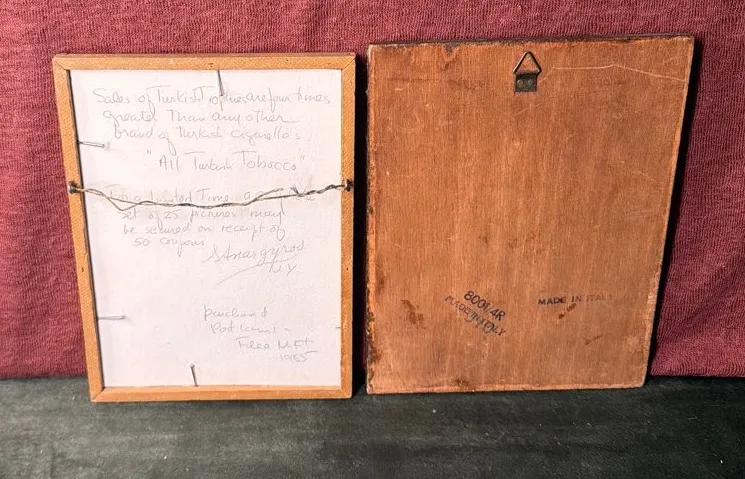 Sales of Turkish Trophies are four times
greater than any other
brand of Turkish cigarettes.
"All Turkish Tobacco"
Limited Time a
set of 25 pictures may
be secured on receipt of
50 coupons
S. Anargyros
NY
purchased
Port
Flea Mkt
10/85
8001/4R
MADE IN ITALY
MADE IN ITALY